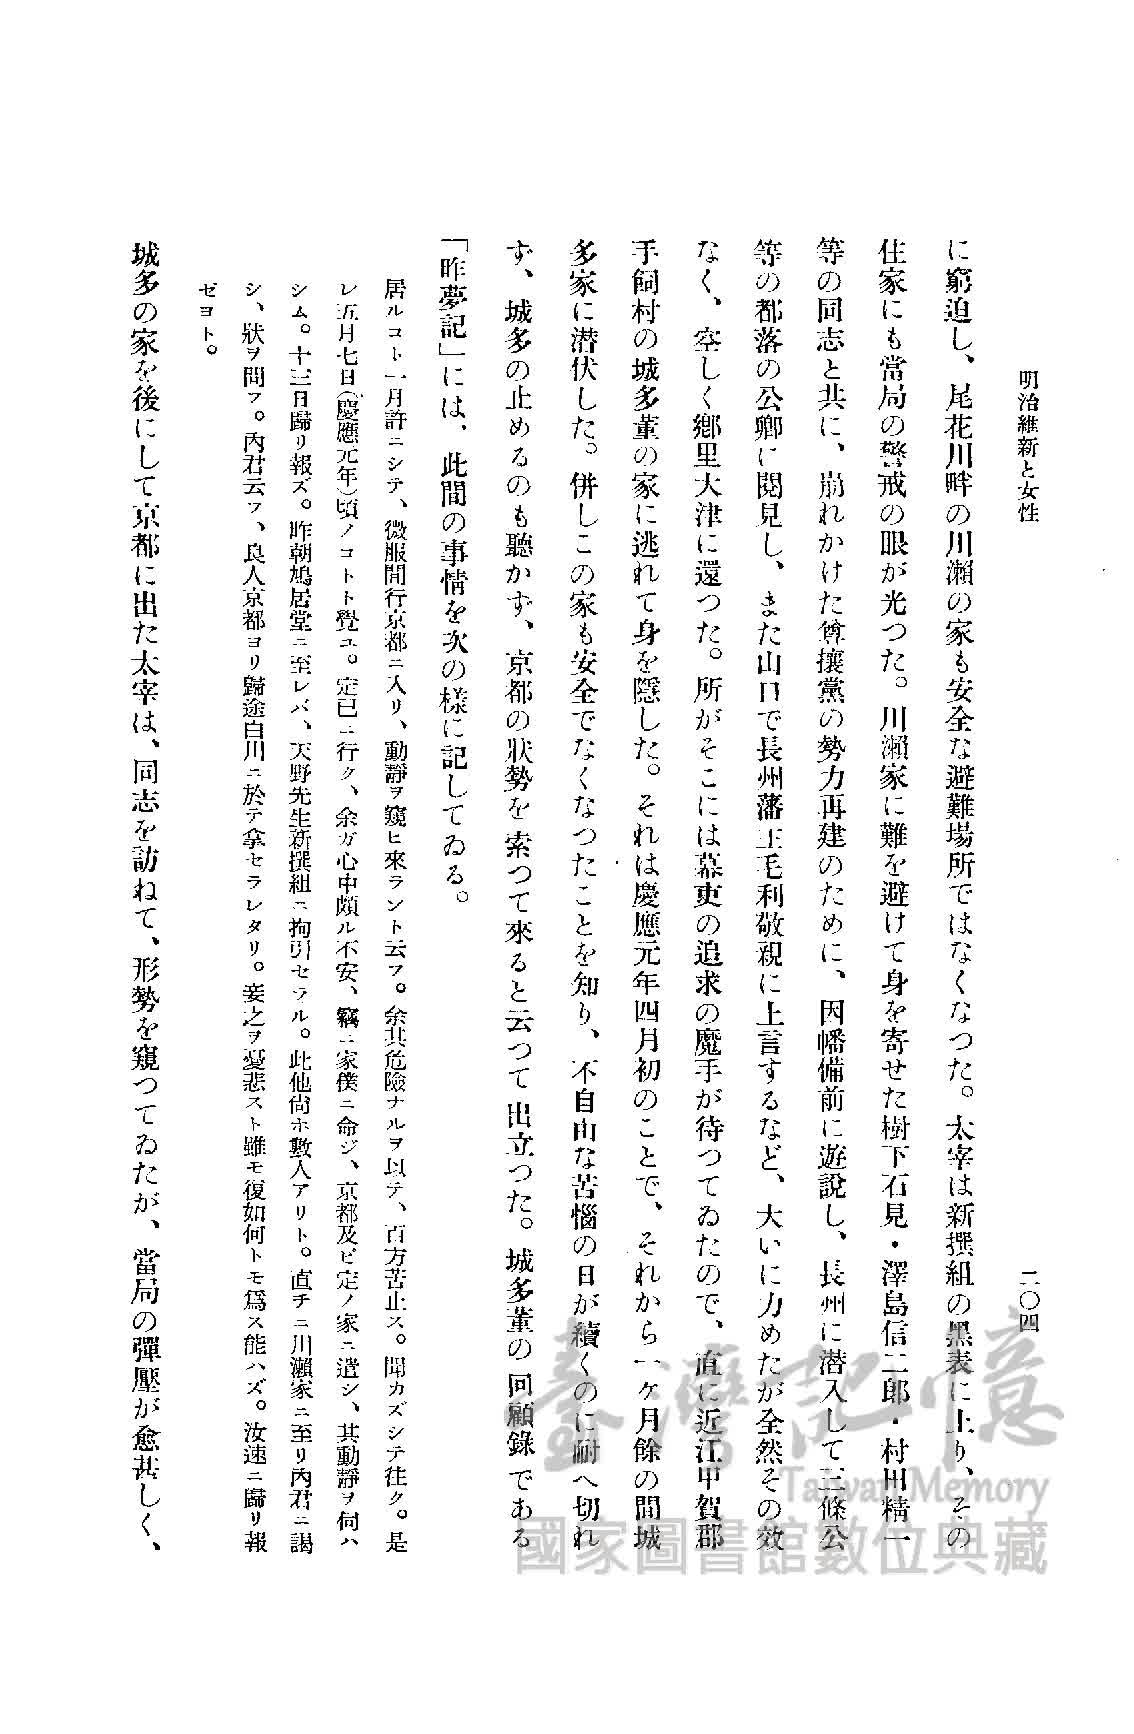 明治維新と女性
二〇四
に窮迫し、尾花川畔の川瀨の家も安全な避難場所ではなくなつた。太宰は新撰組の黑表に上り、その
住家にも當局の警戒の眼が光つた。川瀨家に難を避けて身を寄せた樹下石見・澤島信三郎・村田精一
等の同志と共に、崩れかけた尊攘黨の勢力再建のために、因幡備前に遊說し、長州に潜入して三條公
等の都落の公卿に閱見し、また山口で長州藩主毛利敬親に上言するなど、大いに力めたが全然その效
なく、空しく鄕里大津に還つた。所がそこには幕吏の追求の魔手が待つてゐたので、直に近江甲賀郡
手飼村の城多董の家に逃れて身を隱した。それは慶應元年四月初のことで、それから一ケ月餘の間城
多家に潜伏した。併しこの家も安全でなくなつたことを知り、不自由な苦惱の日が續くのに耐へ切れ
ず、城多の止めるのも聽かず、京都の狀勢を索つて來ると云つて出立つた。城多董の回顧錄である
「昨夢記」には、此間の事情を次の樣に記してゐる。
居ルコト一月許ニシテ、微服間行京都ニ入リ、動靜ヲ窺ヒ來ラント云フ。余其危險ナルヲ以テ、百方苦止ス。聞カズシテ往ク。是
レ五月七日(慶應元年)頃ノコトト覺ユ。定已ニ行ク、余ガ心中頗ル不安、竊ニ家僕ニ命ジ、京都及ビ定ノ家ニ遣シ、其動靜ヲ伺ハ
シム。十三日歸リ報ズ。昨朝鳩居堂ニ至レバ、天野先生新撰組ニ拘引セラル。此他尙ホ數人アリト。直チニ川瀨家ニ至リ內君ニ謁
シ、狀ヲ問フ。內君云フ、良人京都ヨリ歸途白川ニ於テ拿セラレタリ。妾之ヲ憂悲スト雖モ復如何トモ爲ス能ハズ。汝速ニ歸リ報
ゼヨト。
城多の家を後にして京都に出た太宰は、同志を訪ねて、形勢を窺つてゐたが、當局の彈壓が愈甚しく、
臺灣記憶
Taiwan Memory
國家圖書館數位典藏